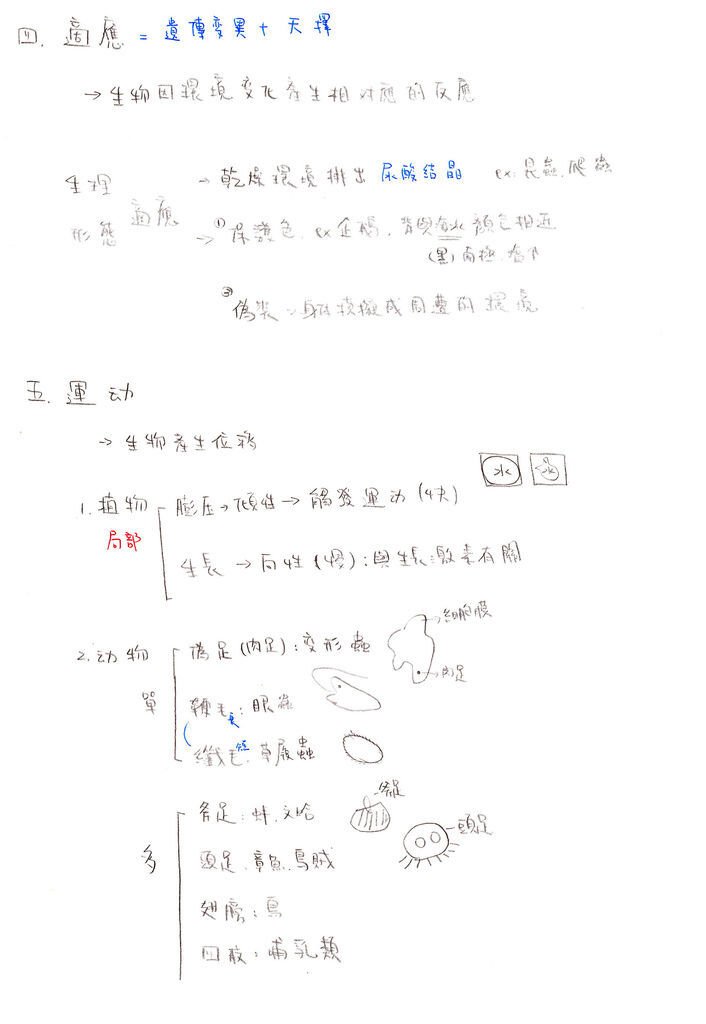 四. 適應 = 遺傳變異 + 天擇
→ 生物因環境變化產生相對應的反應
生理 → 乾燥環境排出 尿酸結晶 ex: 昆蟲、爬蟲
適應
形態 → ① 保護色. ex 企鵝, 背與海水顏色相近
(黑) 南極.
② 偽裝: 身體模擬成周遭的環境
五. 運动
→ 生物產生位移
水 水
1. 植物 膨压→傾性→觸發運动(快)
局部
生長→向性(慢):與生長激素有關
細胞膜
2. 动物 偽足(肉足): 变形蟲
肉足
單 鞭毛長: 眼蟲
纖毛短. 草履蟲
斧足
斧足: 蚌.文哈
頭足
多 頭足.章魚.烏賊
翅膀: 鳥
四肢: 哺乳類